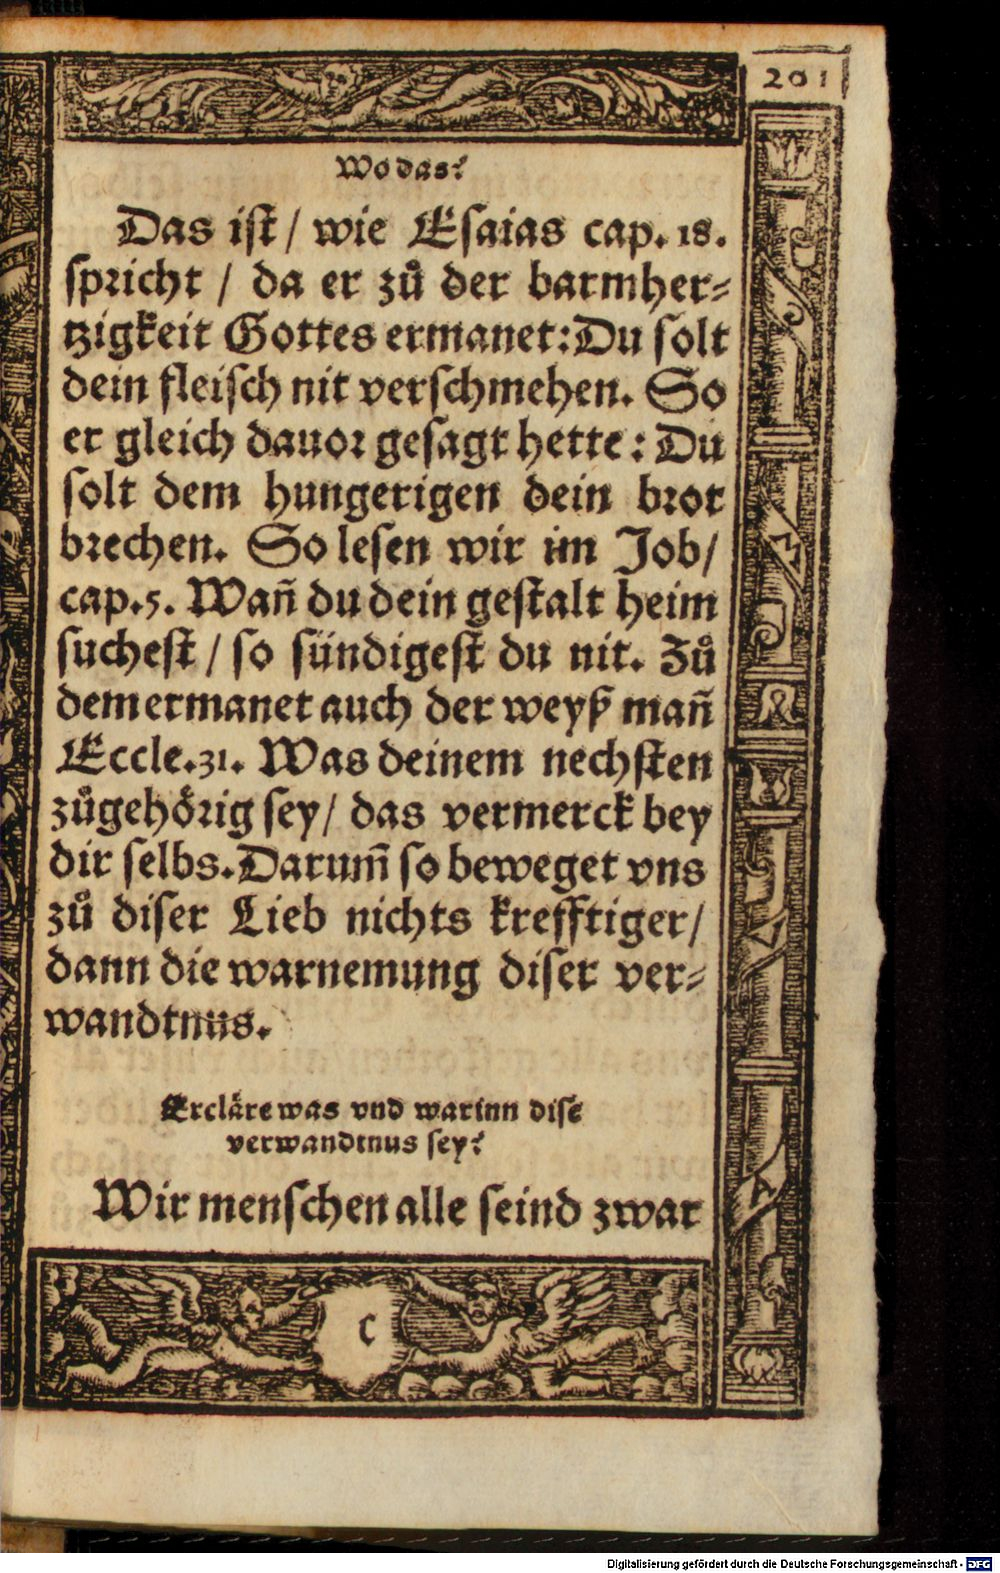 201
Wo das?
Das ist / wie Esaias cap. 18.
spricht / da er zů der barmher⸗
tzigkeit Gottes ermanet: Du solt
dein fleisch nit verschmehen. So
er gleich dauor gesagt hette: Du
solt dem hungerigen dein brot
brechen. So lesen wir im Job/
cap.5. Wañ du dein gestalt heim
suchest / so sündigest du nit. Zů
dem ermanet auch der weyß mañ
Eccle.31. Was deinem nechsten
zůgehörig sey/ das vermerck bey
dir selbs. Darum̃ so beweget vns
zů diser Lieb nichts krefftiger/
dann die warnemung diser ver⸗
wandtnus.
Ercläre was vnd warinn dise
verwandtnus sey?
Wir menschen alle seind zwar
C
Digitalisierung gefördert durch die Deutsche Forschungsgemeinschaft - DFG